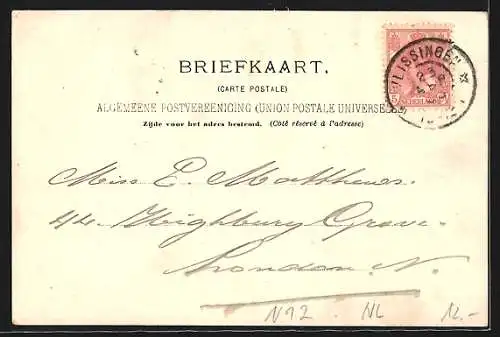 BRIEFKAART.
(CARTE POSTALE)
ALGEMEENE POSTVEREENIGING (UNION POSTALE UNIVERSELLE)
Zijde voor het adres bestemd. (Côté réservé à l'adresse)
VLISSINGEN
Miss E. Matthews.
44 Highbury Grove.
London N.
N12 NL 12.-